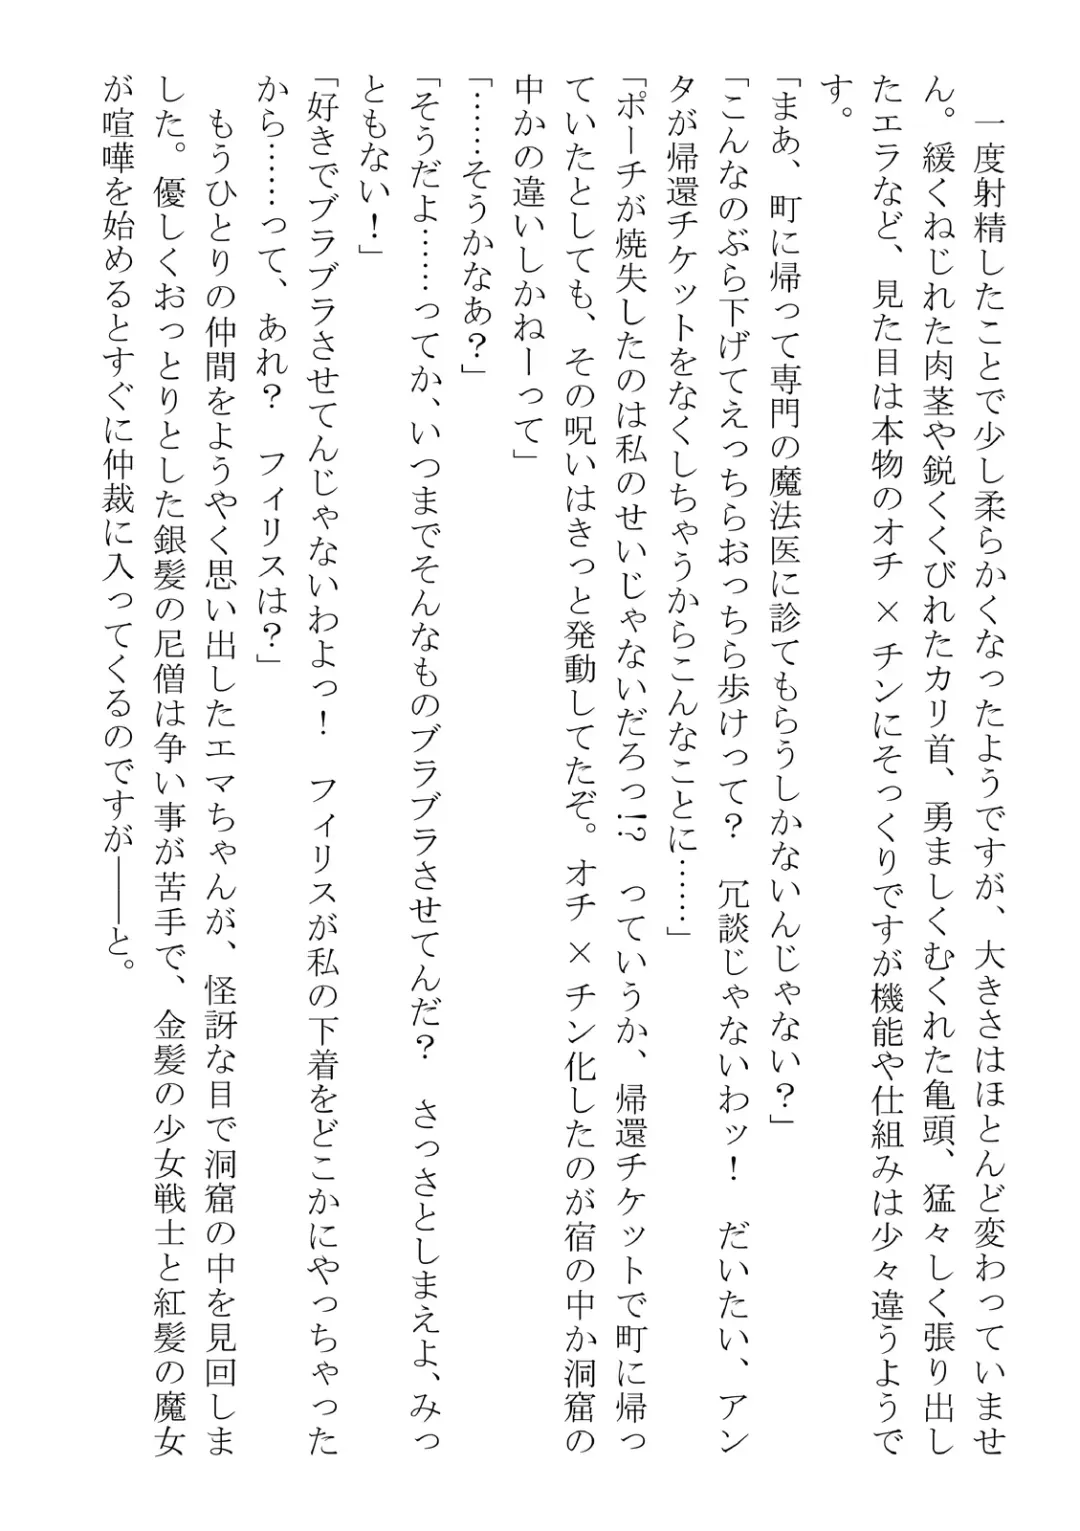 一度射精したことで少し柔らかくなったようですが、大きさはほとんど変わっていませ
ん。緩くねじれた肉茎や鋭くくびれたカリ首、勇ましくむくれた亀頭、猛々しく張り出し
たエラなど、見た目は本物のオチ×チンにそっくりですが機能や仕組みは少々違うようで
す。
「まあ、町に帰って専門の魔法医に診てもらうしかないんじゃない？」
「こんなのぶら下げてえっちらおっちら歩けって？　冗談じゃないわッ！　だいたい、アン
タが帰還チケットをなくしちゃうからこんなことに……」
「ポーチが焼失したのは私のせいじゃないだろっ!?　っていうか、帰還チケットで町に帰っ
ていたとしても、その呪いはきっと発動してたぞ。オチ×チン化したのが宿の中か洞窟の
中かの違いしかねーって」
「……そうかなあ？」
「そうだよ……ってか、いつまでそんなものブラブラさせてんだ？　さっさとしまえよ、みっ
ともない！」
「好きでブラブラさせてんじゃないわよっ！　フィリスが私の下着をどこかにやっちゃった
から……って、あれ？　フィリスは？」
　もうひとりの仲間をようやく思い出したエマちゃんが、怪訝な目で洞窟の中を見回しま
した。優しくおっとりとした銀髪の尼僧は争い事が苦手で、金髪の少女戦士と紅髪の魔女
が喧嘩を始めるとすぐに仲裁に入ってくるのですが――と。